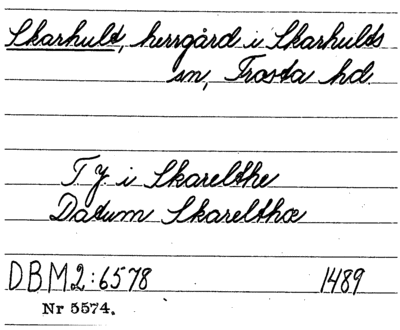 Skarhult, herrgård i Skarhults
sn, Frosta hd.
T J i Skarelthe
Datum Skarelthæ
DBM2:6578 1489
Nr 5574.